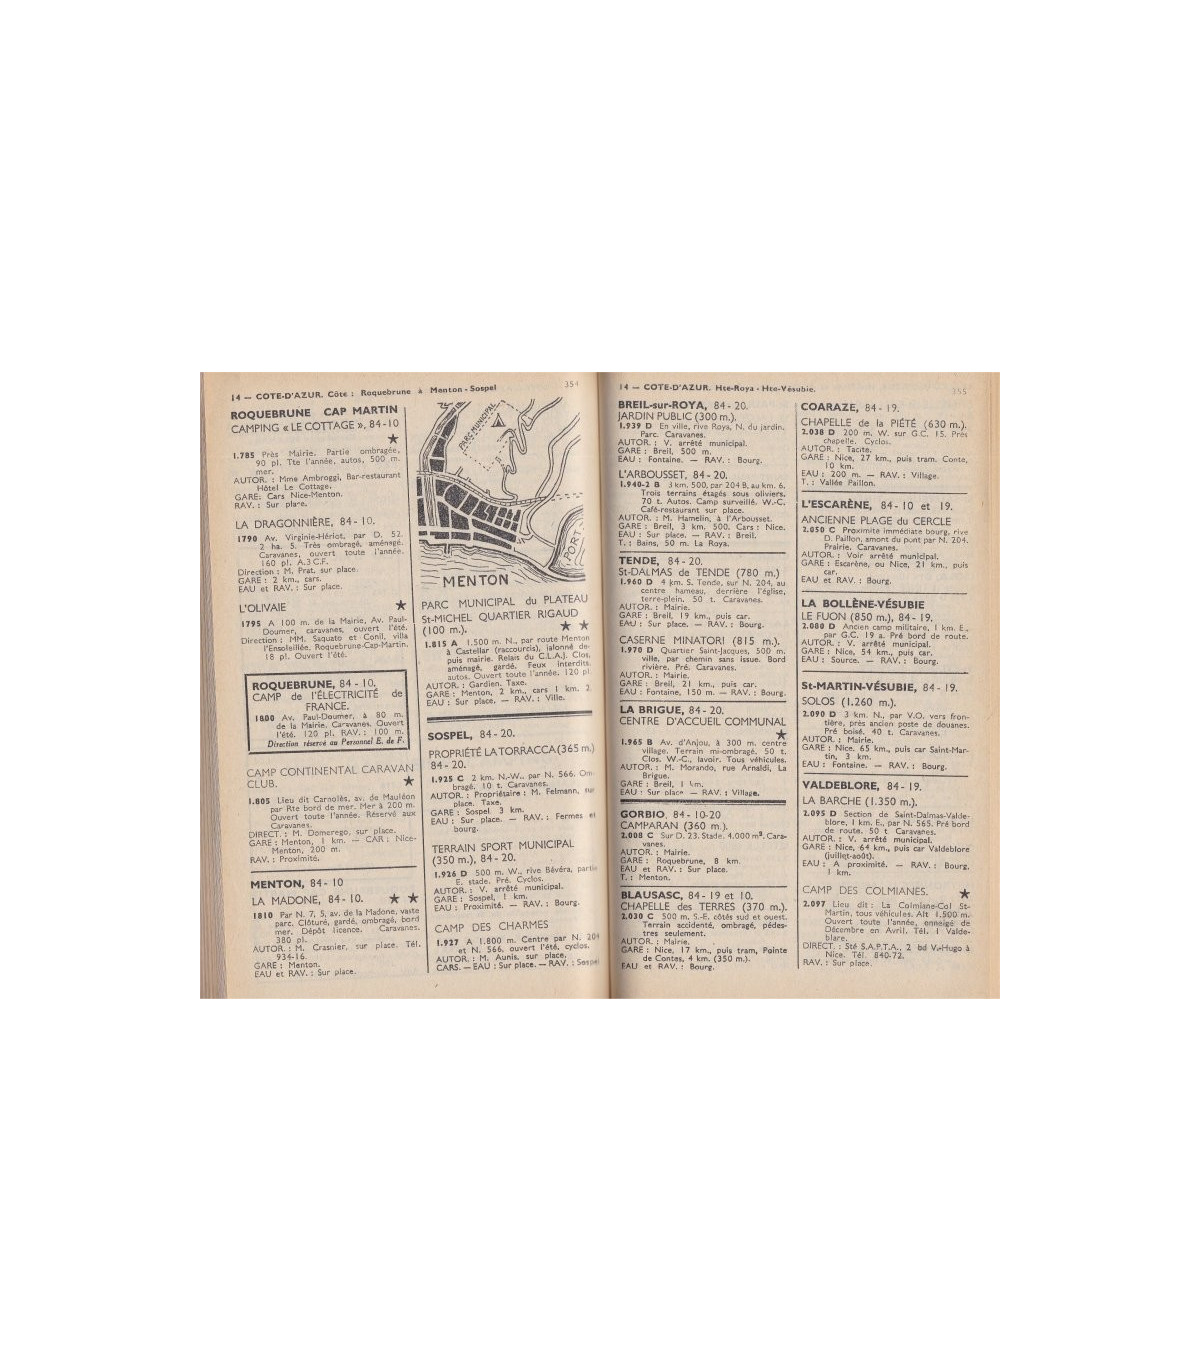 14 — COTE-D'AZUR. Côte : Roquebrune à Menton - Sospel
354
ROQUEBRUNE CAP MARTIN
CAMPING « LE COTTAGE », 84-10
★
1.785 Près Mairie. Partie ombragée,
90 pl. Tte l'année, autos, 500 m.
mer.
AUTOR. : Mme Ambroggi, Bar-restaurant
Hôtel Le Cottage.
GARE: Cars Nice-Menton.
RAV. : Sur place.
LA DRAGONNIÈRE, 84 - 10.
1790 Av. Virginie-Hériot, par D. 52.
2 ha. 5. Très ombragé, aménagé.
Caravanes, ouvert toute l'année.
160 pl. A.3 C.F.
Direction : M. Prat, sur place.
GARE : 2 km., cars.
EAU et RAV. : Sur place.
L'OLIVAIE ★
1795 A 100 m. de la Mairie, Av. Paul-
Doumer, caravanes, ouvert l'été.
Direction : MM. Saquato et Conil, villa
l'Ensoleillée, Roquebrune-Cap-Martin.
18 pl. Ouvert l'été.
ROQUEBRUNE, 84 - 10.
CAMP de l'ÉLECTRICITÉ de
FRANCE.
1800 Av. Paul-Doumer, à 80 m.
de la Mairie. Caravanes. Ouvert
l'été. 120 pl. RAV. : 100 m.
Direction réservé au Personnel E. de F.
CAMP CONTINENTAL CARAVAN
CLUB. ★
1.805 Lieu dit Carnolès, av. de Mauléon
par Rte bord de mer. Mer à 200 m.
Ouvert toute l'année. Réservé aux
Caravanes.
DIRECT. : M. Domerego, sur place.
GARE : Menton, 1 km. — CAR : Nice-
Menton, 200 m.
RAV. : Proximité.
MENTON, 84 - 10
LA MADONE, 84 - 10. ★ ★
1810 Par N. 7, 5, av. de la Madone, vaste
parc. Clôturé, gardé, ombragé, bord
mer. Dépôt licence. Caravanes.
380 pl.
AUTOR. : M. Crasnier, sur place. Tél.
934-16.
GARE : Menton.
EAU et RAV. : Sur place.
PARC MUNICIPAL
PORT
MENTON
PARC MUNICIPAL du PLATEAU
St-MICHEL QUARTIER RIGAUD
(100 m.). ★ ★
1.815 A 1.500 m. N., par route Menton
à Castellar (raccourcis), jalonné de-
puis mairie. Relais du C.L.A.J. Clos,
aménagé, gardé. Feux interdits,
autos. Ouvert toute l'année. 120 pl.
AUTOR. : Gardien. Taxe.
GARE : Menton, 2 km., cars 1 km. 2
EAU : Sur place. — RAV. : Ville.
SOSPEL, 84 - 20.
PROPRIÉTÉ LA TORRACCA (365 m.)
84 - 20.
1.925 C 2 km. N.-W., par N. 566. Om-
bragé. 10 t. Caravanes.
AUTOR. : Propriétaire : M. Felmann, sur
place. Taxe.
GARE : Sospel 3 km.
EAU : Sur place. — RAV. : Fermes et
bourg.
TERRAIN SPORT MUNICIPAL
(350 m.), 84 - 20.
1.926 D 500 m. W., rive Bévéra, partie
E. stade. Pré. Cyclos.
AUTOR. : V. arrêté municipal.
GARE : Sospel, 1 km.
EAU : Proximité. — RAV. : Bourg.
CAMP DES CHARMES
1.927 A 1.800 m. Centre par N. 204
et N. 566, ouvert l'été, cyclos.
AUTOR. : M. Aunis, sur place.
CARS. — EAU : Sur place. — RAV. : Sospel
14 — COTE-D'AZUR. Hte-Roya - Hte-Vésubie.
355
BREIL-sur-ROYA, 84 - 20.
JARDIN PUBLIC (300 m.).
1.939 D En ville, rive Roya, N. du jardin.
Parc. Caravanes.
AUTOR. : V. arrêté municipal.
GARE : Breil, 500 m.
EAU : Fontaine. — RAV. : Bourg.
L'ARBOUSSET, 84 - 20.
1.940-2 B 3 km. 500, par 204 B, au km. 6.
Trois terrains étagés sous oliviers.
70 t. Autos. Camp surveillé. W.-C.
Café-restaurant sur place.
AUTOR. : M. Hamelin, à l'Arbousset.
GARE : Breil, 3 km. 500. Cars : Nice.
EAU : Sur place. — RAV. : Breil.
T. : Bains, 50 m. La Roya.
TENDE, 84 - 20.
St-DALMAS de TENDE (780 m.)
1.960 D 4 km. S. Tende, sur N. 204, au
centre hameau, derrière l'église,
terre-plein. 50 t. Caravanes.
AUTOR. : Mairie.
GARE : Breil, 19 km., puis car.
EAU : Sur place. — RAV. : Bourg.
CASERNE MINATORI (815 m.).
1.970 D Quartier Saint-Jacques, 500 m.
ville, par chemin sans issue. Bord
rivière. Pré. Caravanes.
AUTOR. : Mairie.
GARE : Breil, 21 km., puis car.
EAU : Fontaine, 150 m. — RAV. : Bourg.
LA BRIGUE, 84 - 20.
CENTRE D'ACCUEIL COMMUNAL
★
1.965 B Av. d'Anjou, à 300 m. centre
village. Terrain mi-ombragé. 50 t.
Clos. W.-C., lavoir. Tous véhicules.
AUTOR. : M. Morando, rue Arnaldi, La
Brigue.
GARE : Breil, 1 km.
EAU : Sur place — RAV. : Village.
GORBIO, 84 - 10-20
CAMPARAN (360 m.)
2.008 C Sur D. 23. Stade. 4.000 m². Cara-
vanes.
AUTOR. : Mairie.
GARE : Roquebrune, 8 km.
EAU et RAV. : Sur place.
T. : Menton.
BLAUSASC, 84 - 19 et 10.
CHAPELLE des TERRES (370 m.).
2.030 C 500 m. S.-E. côtés sud et ouest.
Terrain accidenté, ombragé, pédes-
tres seulement.
AUTOR. : Mairie.
GARE : Nice, 17 km., puis tram, Pointe
de Contes, 4 km. (350 m.).
EAU et RAV. : Bourg.
COARAZE, 84 - 19.
CHAPELLE de la PIÉTÉ (630 m.).
2.038 D 200 m. W. sur G.C. 15. Près
chapelle. Cyclos.
AUTOR. : Tacite.
GARE : Nice, 27 km., puis tram. Conte,
10 km.
EAU : 200 m. — RAV. : Village.
T. : Vallée Paillon.
L'ESCARÈNE, 84 - 10 et 19.
ANCIENNE PLAGE du CERCLE
2.050 C Proximité immédiate bourg, rive
D. Paillon, amont du pont par N. 204.
Prairie. Caravanes.
AUTOR. : Voir arrêté municipal.
GARE : Escarène, ou Nice, 21 km., puis
car.
EAU et RAV. : Bourg.
LA BOLLÈNE-VÉSUBIE
LE FUON (850 m.), 84 - 19.
2.080 D Ancien camp militaire, 1 km. E.,
par G.C. 19 a. Pré bord de route.
AUTOR. : V. arrêté municipal.
GARE : Nice, 54 km., puis car.
EAU : Source. — RAV. : Bourg.
St-MARTIN-VÉSUBIE, 84 - 19.
SOLOS (1.260 m.).
2.090 D 3 km. N., par V.O. vers fron-
tière, près ancien poste de douanes.
Pré boisé. 40 t. Caravanes.
AUTOR. : Mairie.
GARE : Nice, 65 km., puis car Saint-Mar-
tin, 3 km.
EAU : Fontaine. — RAV. : Bourg.
VALDEBLORE, 84 - 19.
LA BARCHE (1.350 m.).
2.095 D Section de Saint-Dalmas-Valde-
blore, 1 km. E., par N. 565. Pré bord
de route. 50 t Caravanes.
AUTOR. : V. arrêté municipal.
GARE : Nice, 64 km., puis car Valdeblore
(juillet-août).
EAU : A proximité. — RAV. : Bourg,
1 km.
CAMP DES COLMIANES. ★
2.097 Lieu dit : La Colmiane-Col St-
Martin, tous véhicules. Alt 1.500 m.
Ouvert toute l'année, enneigé de
Décembre en Avril. Tél. 1 Valde-
blore.
DIRECT. : Sté S.A.P.T.A., 2 bd V.-Hugo à
Nice. Tél. 840-72.
RAV. : Sur place.